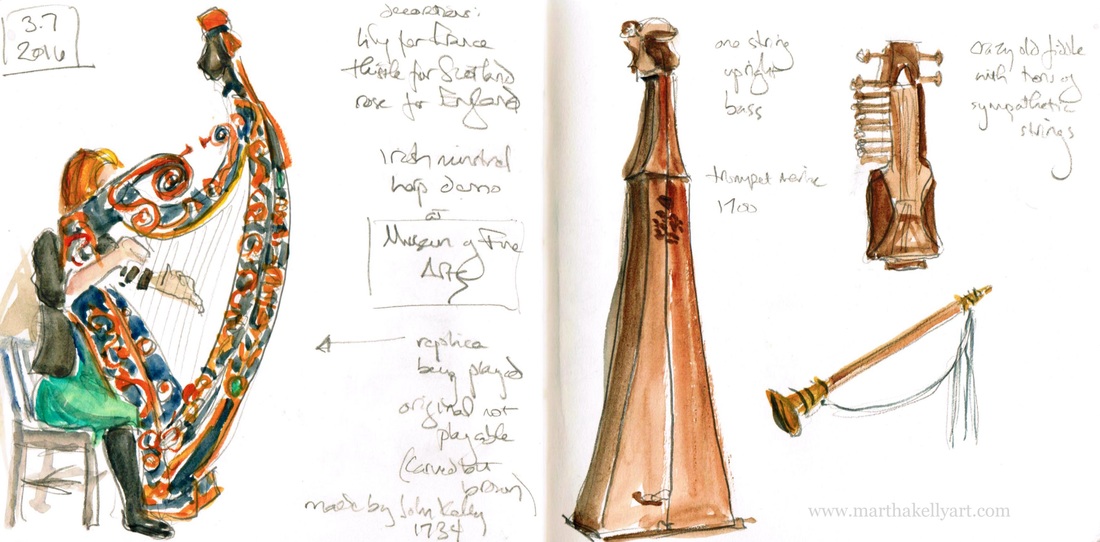 3.7
2016
decorations:
lily for France
thistle for Scotland
rose for England
Irish minstral
harp demo
at
Museum of Fine
Arts
replica
being played
original not
playable
(carved but
brown)
made by John Kelly
1734
one string
upright
bass
trumpet marine
1700
crazy old fiddle
with tons of
sympathetic
strings
www.marthakellyart.com